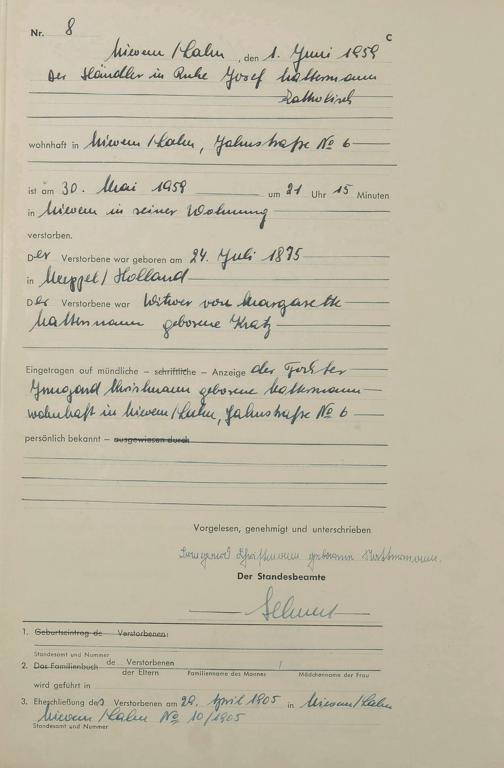 Nr. 8
C
Nievern/Lahn, den 1. Juni 1959
Der Händler in Ruhe Josef Mattermann
Katholisch
wohnhaft in Nievern/Lahn, Jahnstraße No 6
ist am 30. Mai 1959 um 21 Uhr 15 Minuten
in Nievern in seiner Wohnung
verstorben.
Der Verstorbene war geboren am 24. Juli 1875
in Meppel/Holland
Der Verstorbene war Witwer von Margarethe
Mattermann geborene Kratz
Eingetragen auf mündliche – schriftliche – Anzeige der Tochter
Irmgard Christmann geborene Mattermann
wohnhaft in Nievern/Lahn, Jahnstraße No 6
persönlich bekannt – ausgewiesen durch
Vorgelesen, genehmigt und unterschrieben
Irmgard Christmann geborene Mattermann.
Der Standesbeamte
1. Geburtseintrag de Verstorbenen:
Standesamt und Nummer
2. Das Familienbuch de Verstorbenen /
der Eltern Familienname des Mannes Mädchenname der Frau
wird geführt in
3. Eheschließung des Verstorbenen am 29. April 1905 in Nievern/Lahn
Nievern/Lahn No 10/1905
Standesamt und Nummer